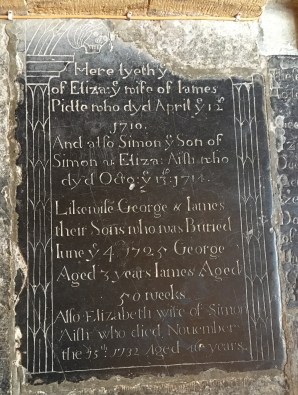 Here lyeth yͤ
of Eliza: yͤ wife of Iames
Pidle who dyd April yͤ 12
1710.
And also Simon yͤ Son of
Simon & Eliza: Aish who
dyd Octo: yͤ 13: 1714.
Likewise George & Iames
their Sons who was Buried
Iune yͤ 4 1725 George
Aged 3 years Iames Aged
50 weeks
Also Elizabeth wife of Simon
Aish who died November
the 1732 Aged years.